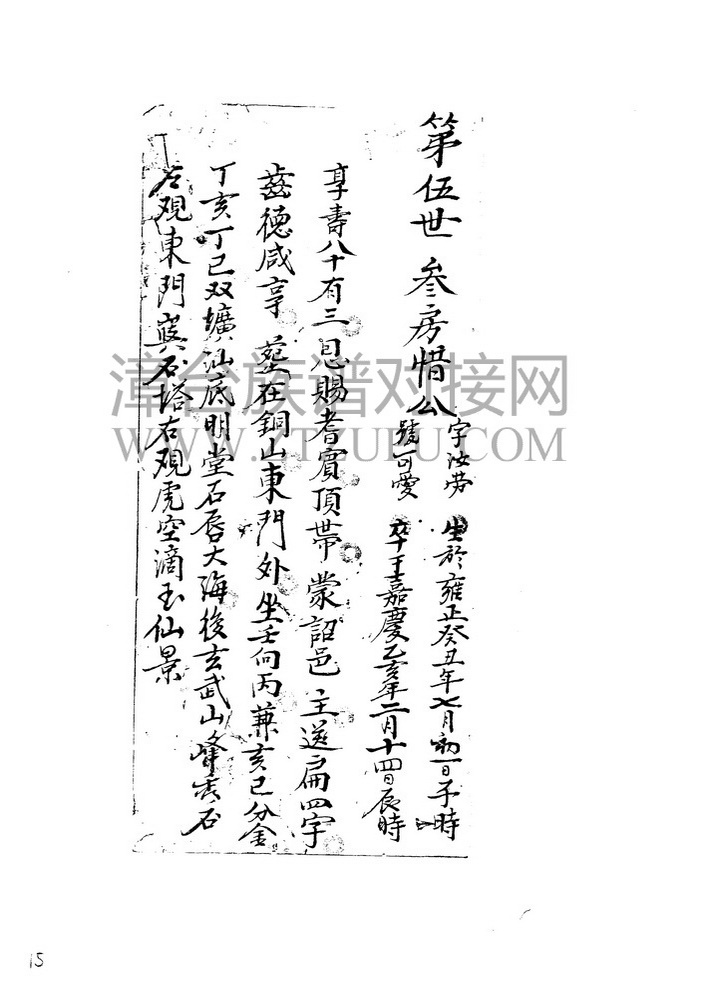 第伍世 叁房惜公
字汝勞 生於雍正癸丑年七月初一日子時
號可愛 卒于嘉慶乙亥年二月十四日辰時
享壽八十有三 恩賜耆賓頂帶 蒙詔邑主送扁四字
齒德咸享 墓在銅山東門外坐壬向丙兼亥巳分金
丁亥丁巳双壙汕底明堂石唇大海後玄武山峰 石
左观東門 石塔右观虎空滴玉仙景
漳台族谱对接网
WWW.ZTZUPU.COM
15